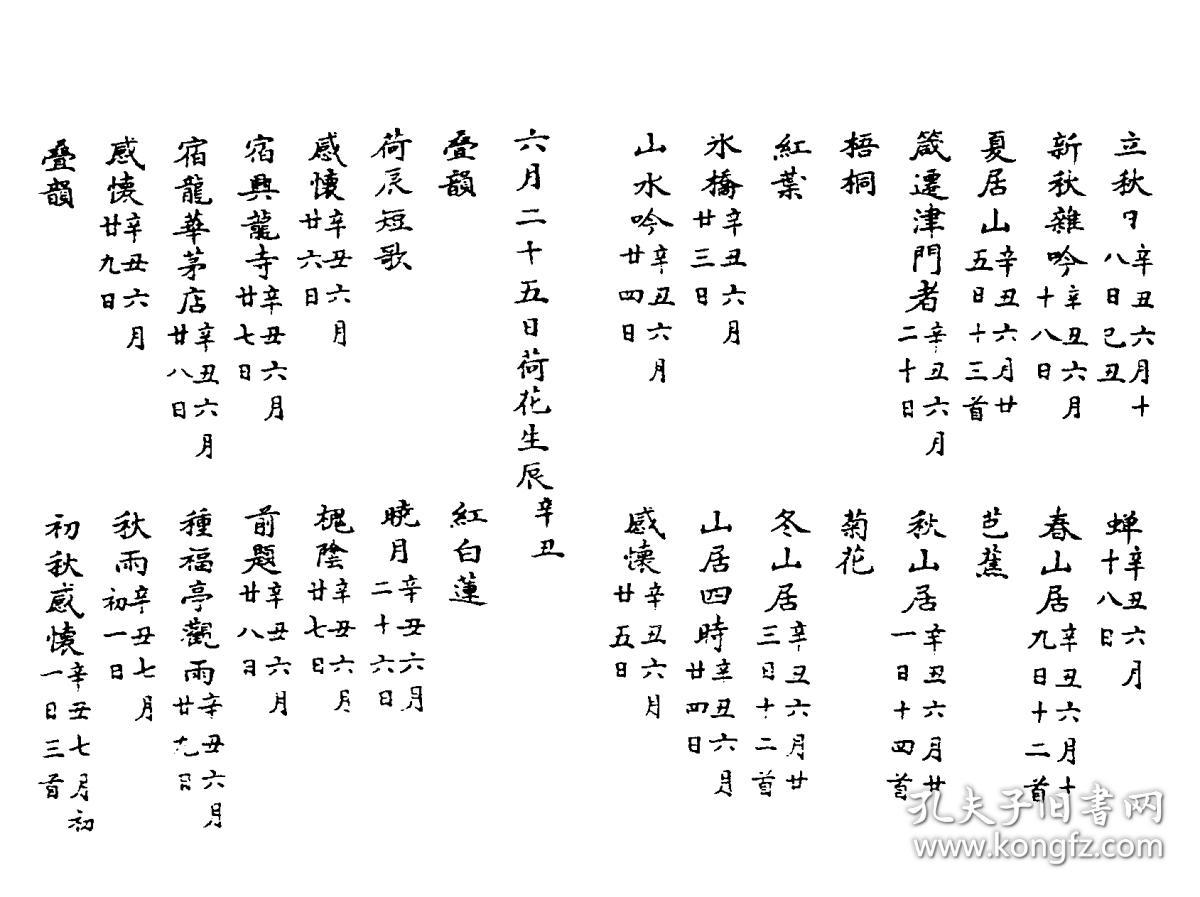 立秋日辛丑六月十八日己丑
蝉辛丑六月十八日
新秋雜吟辛丑六月十八日
春山居辛丑六月十九日十二首
夏居山辛丑六月廿五日十三首
芭蕉
箴遷津門者辛丑六月二十日
秋山居辛丑六月廿一日十四首
梧桐
菊花
紅葉
冬山居辛丑六月廿三日十二首
氷橋辛丑六月廿三日
山居四時辛丑六月廿四日
山水吟辛丑六月廿四日
感懷辛丑六月廿五日
六月二十五日荷花生辰辛丑
叠韻
紅白蓮
荷辰短歌
曉月辛丑六月二十六日
感懷辛丑六月廿六日
槐陰辛丑六月廿七日
宿興龍寺辛丑六月廿七日
前題辛丑六月廿八日
宿龍華茅店辛丑六月廿八日
種福亭觀雨辛丑六月廿九日
感懷辛丑六月廿九日
秋雨辛丑七月初一日
叠韻
初秋感懷辛丑七月初一日三首
孔夫子旧书网
www.kongfz.com